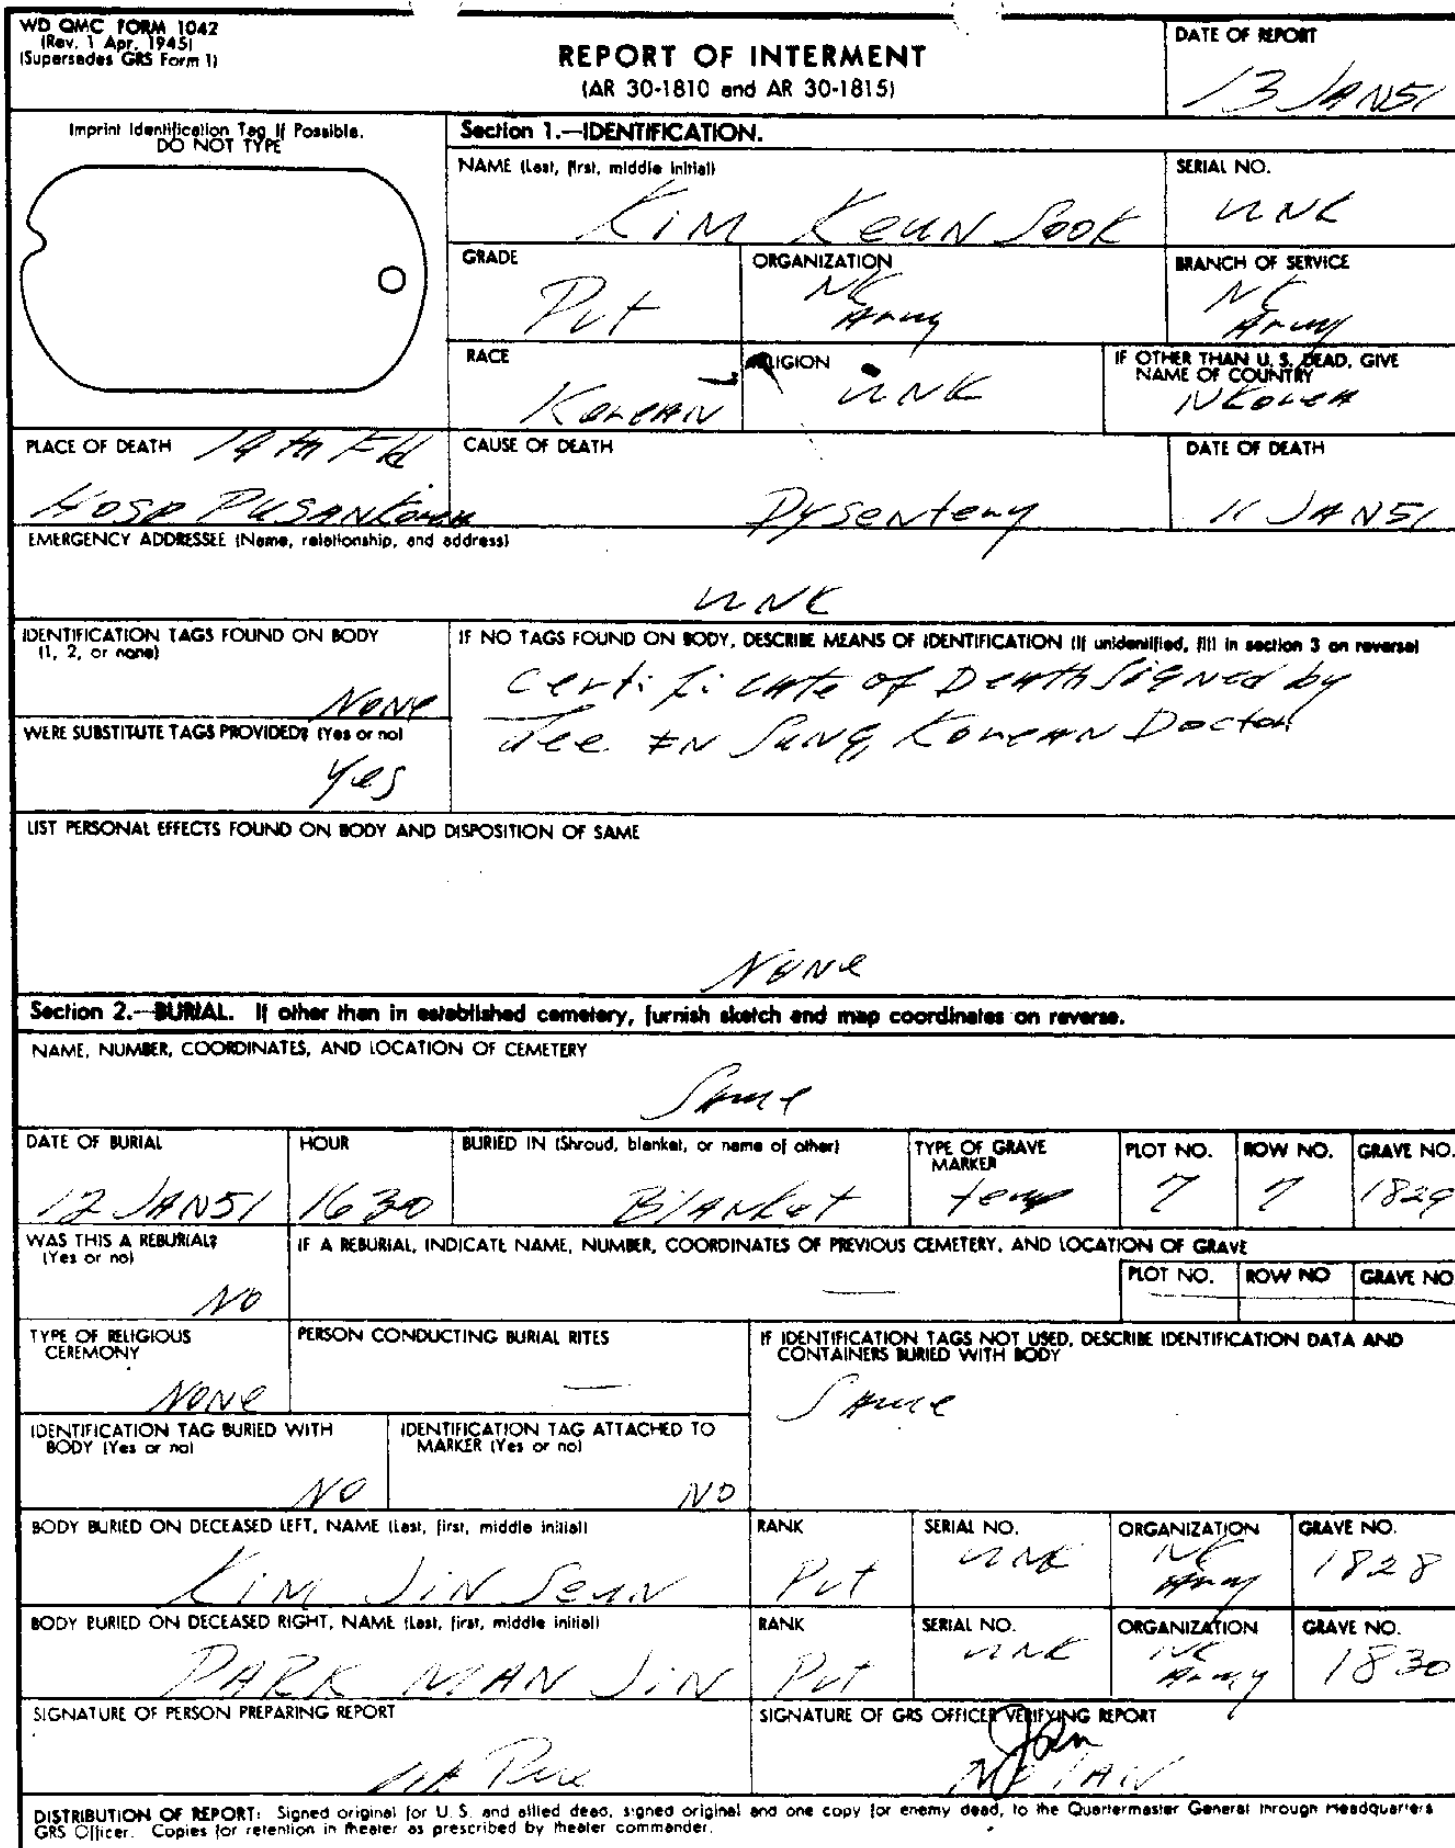 WD QMC FORM 1042
(Rev. 1 Apr. 1945)
(Supersedes GRS Form 1)
REPORT OF INTERMENT
(AR 30-1810 and AR 30-1815)
DATE OF REPORT
13 JAN51
Imprint Identification Tag If Possible.
DO NOT TYPE
Section 1.—IDENTIFICATION.
NAME (Last, first, middle initial)
KiM KeuN Sook
SERIAL NO.
UNK
GRADE
Pvt
ORGANIZATION
NK
Army
BRANCH OF SERVICE
NK
Army
RACE
KoreAN
RELIGION
UNK
IF OTHER THAN U. S. DEAD, GIVE
NAME OF COUNTRY
N Korea
PLACE OF DEATH 14th Fld
Hosp PUSAN Korea
CAUSE OF DEATH
Dysentery
DATE OF DEATH
11 JAN51
EMERGENCY ADDRESSEE (Name, relationship, and address)
UNK
IDENTIFICATION TAGS FOUND ON BODY
(1, 2, or none)
None
IF NO TAGS FOUND ON BODY, DESCRIBE MEANS OF IDENTIFICATION (If unidentified, fill in section 3 on reverse)
Certificate of Death Signed by
Sung, Korean Doctor
WERE SUBSTITUTE TAGS PROVIDED? (Yes or no)
Yes
LIST PERSONAL EFFECTS FOUND ON BODY AND DISPOSITION OF SAME
None
Section 2.—BURIAL. If other than in established cemetery, furnish sketch and map coordinates on reverse.
NAME, NUMBER, COORDINATES, AND LOCATION OF CEMETERY
Same
DATE OF BURIAL
12 JAN51
HOUR
1630
BURIED IN (Shroud, blanket, or name of other)
Blanket
TYPE OF GRAVE
MARKER
temp
PLOT NO.
7
ROW NO.
7
GRAVE NO.
1829
WAS THIS A REBURIAL?
(Yes or no)
NO
IF A REBURIAL, INDICATE NAME, NUMBER, COORDINATES OF PREVIOUS CEMETERY, AND LOCATION OF GRAVE
—
PLOT NO.
ROW NO
GRAVE NO
TYPE OF RELIGIOUS
CEREMONY
None
PERSON CONDUCTING BURIAL RITES
—
IF IDENTIFICATION TAGS NOT USED, DESCRIBE IDENTIFICATION DATA AND
CONTAINERS BURIED WITH BODY
Same
IDENTIFICATION TAG BURIED WITH
BODY (Yes or no)
NO
IDENTIFICATION TAG ATTACHED TO
MARKER (Yes or no)
NO
BODY BURIED ON DECEASED LEFT, NAME (Last, first, middle initial)
KiM JiN Seun
RANK
Pvt
SERIAL NO.
UNK
ORGANIZATION
NK
Army
GRAVE NO.
1828
BODY BURIED ON DECEASED RIGHT, NAME (Last, first, middle initial)
PARK MAN JiN
RANK
Pvt
SERIAL NO.
UNK
ORGANIZATION
NK
Army
GRAVE NO.
1830
SIGNATURE OF PERSON PREPARING REPORT
SIGNATURE OF GRS OFFICER VERIFYING REPORT
DISTRIBUTION OF REPORT: Signed original for U. S. and allied dead, signed original and one copy for enemy dead, to the Quartermaster General through Headquarters
GRS Officer. Copies for retention in theater as prescribed by theater commander.